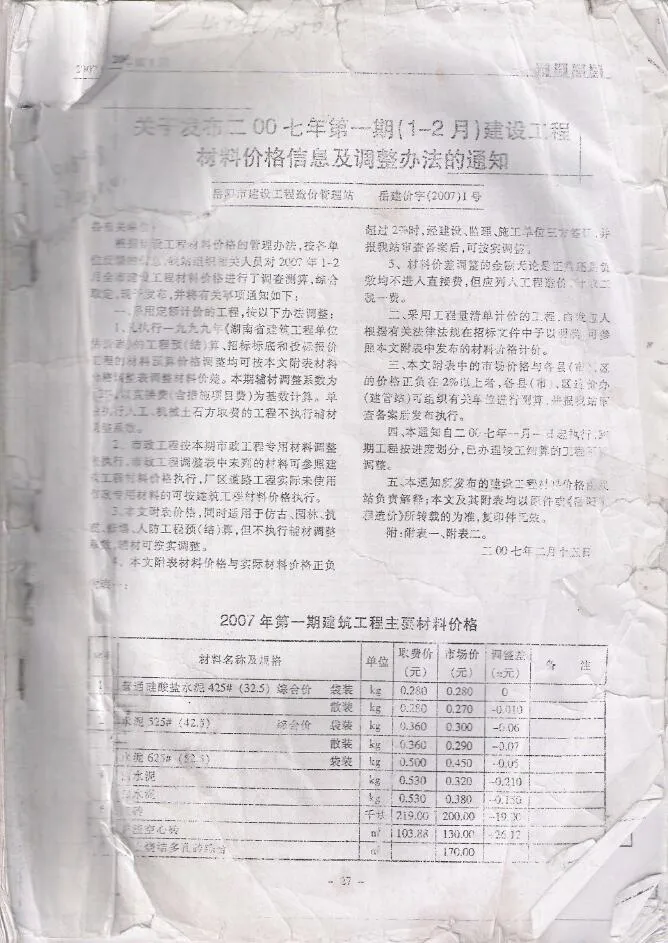 2007
关于发布二00七年第一期(1-2月)建设工程
材料价格信息及调整办法的通知
岳阳市建设工程造价管理站 岳建价字(2007)1号
根据 建设工程材料价格的管理办法,按各单
人员对2007年1-2
月全市建设工程材料价格进行了调查测算,综合
取定,现予发布,并将有关事项通知如下:
一、采用定额计价的工程,按以下办法调整:
1、凡执行一九九九年《湖南省建筑工程单位
的工程预(结)算、招标标底和投标报价
工程的材料预算价格调整均可按本文附表材料
调整表调整材料价差。本期辅材调整系数为
以直接费(含措施项目费)为基数计算。单
执行人工、机械土石方取费的工程不执行辅材
调整系数。
2、市政工程按本期市政工程专用材料调整
执行,市政工程调整表中未列的材料可参照建
筑工程材料价格执行,厂区道路工程实际未使用
市政专用材料的可按建筑工程材料价格执行。
3、本文附表价格,同时适用于仿古、园林、抗
震、修缮、人防工程预(结)算,但不执行辅材调整
系数,辅材可按实调整。
4、本文附表材料价格与实际材料价格正负
超过2%时,经建设、监理、施工单位三方签证,并
报我站审查备案后,可按实调整。
5、材料价差调整的金额无论是正数还是负
数均不进入直接费,但应列入工程造价,计取工
税一费。
二、采用工程量清单计价的工程,由发包人
根据有关法律法规在招标文件中予以明确,可参
照本文附表中发布的材料价格计价。
三、本文附表中的市场价格与各县(市)、区
的价格正负在2%以上者,各县(市)、区造价办
(建管站)可组织有关单位进行测算,并报我站审
查备案后发布执行。
四、本通知自二00七年一月一日起执行,跨
期工程按进度划分,已办理竣工结算的工程不再
调整。
五、本通知所发布的建设工程材料价格由我
站负责解释;本文及其附表均以原件或《岳阳工
程造价》所转载的为准,复印件无效。
附:附表一、附表二。
二00七年二月十五日
附表一:
2007年第一期建筑工程主要材料价格
材料名称及规格 单位 取费价(元) 市场价(元) 调整差(±元) 备 注
普通硅酸盐水泥425#(32.5) 综合价 袋装 kg 0.280 0.280 0
散装 kg 0.280 0.270 -0.010
水泥525#(42.5) 综合价 袋装 kg 0.360 0.300 -0.06
散装 kg 0.360 0.290 -0.07
水泥625#(52.5) 袋装 kg 0.500 0.450 -0.05
水泥 kg 0.530 0.320 -0.210
水泥 kg 0.530 0.380 -0.150
千块 219.00 200.00 -19.00
空心砖 m³ 103.88 130.00 26.12
烧结多孔砖综合 m³ 170.00
- 27 -